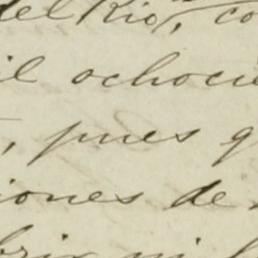 del Rio, co
il ochocie
, pues q
iones de